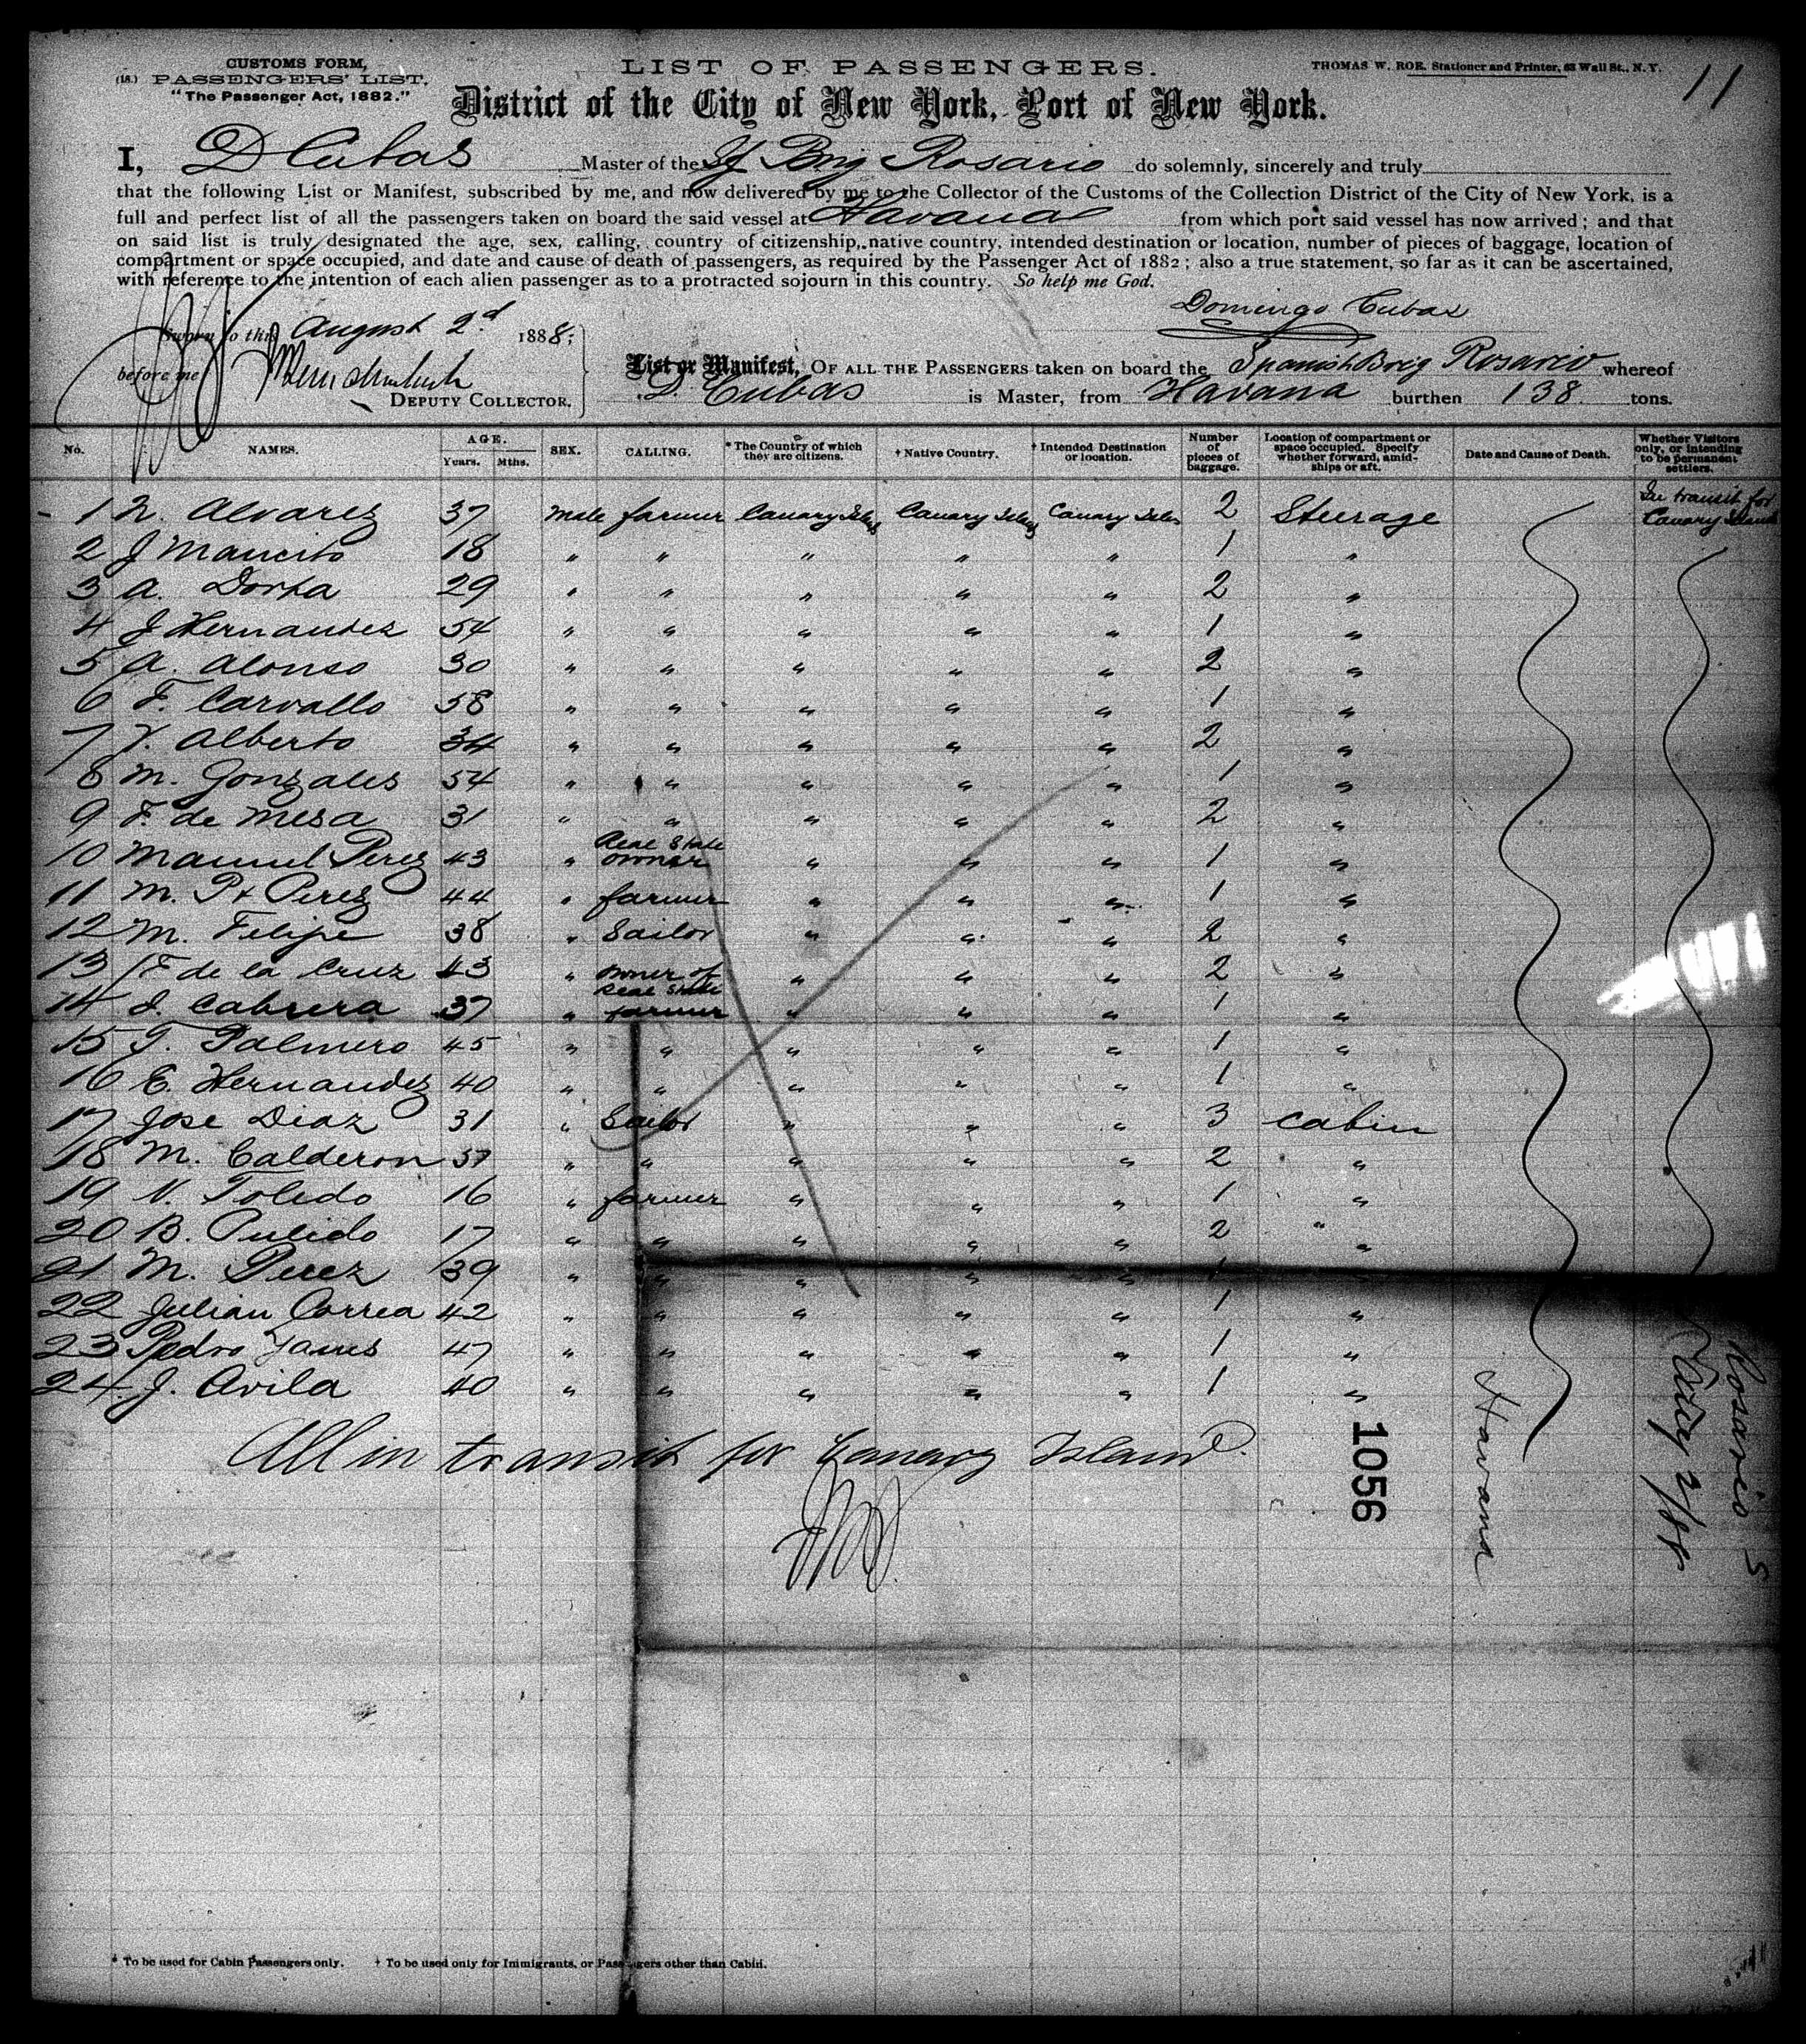 CUSTOMS FORM,
(18.) PASSENGERS' LIST.
"The Passenger Act, 1882."
LIST OF PASSENGERS.
THOMAS W. ROE, Stationer and Printer, 63 Wall St., N. Y.
11
District of the City of New York, Port of New York.
I, D Cubas Master of the Brig Rosario do solemnly, sincerely and truly
that the following List or Manifest, subscribed by me, and now delivered by me to the Collector of the Customs of the Collection District of the City of New York, is a
full and perfect list of all the passengers taken on board the said vessel at Havana from which port said vessel has now arrived; and that
on said list is truly designated the age, sex, calling, country of citizenship, native country, intended destination or location, number of pieces of baggage, location of
compartment or space occupied, and date and cause of death of passengers, as required by the Passenger Act of 1882; also a true statement, so far as it can be ascertained,
with reference to the intention of each alien passenger as to a protracted sojourn in this country. So help me God.
Domingo Cubas
Sworn to this August 2d 1888;
before me
DEPUTY COLLECTOR.
List or Manifest, OF ALL THE PASSENGERS taken on board the Spanish Brig Rosario whereof
D. Cubas is Master, from Havana burthen 138 tons.
No. NAMES. AGE. Years. Mths. SEX. CALLING. * The Country of which they are citizens. † Native Country. † Intended Destination or location. Number of pieces of baggage. Location of compartment or space occupied. Specify whether forward, amidships or aft. Date and Cause of Death. Whether Visitors only, or intending to be permanent settlers.
1 Alvarez 37 Male farmer Canary Isles Canary Isles Canary Isles 2 Steerage In transit for Canary Islands
2 J Mancito 18 " " " " " 1 "
3 A. Dorta 29 " " " " " 2 "
4 J Hernandez 54 " " " " " 1 "
5 A. Alonso 30 " " " " " 2 "
6 F. Carvallo 58 " " " " " 1 "
7 V. Alberto 34 " " " " " 2 "
8 M. Gonzales 54 " " " " " 1 "
9 F. de Mesa 31 " " " " " 2 "
10 Manuel Perez 43 " Real State owner " " " 1 "
11 M. Pt Perez 44 " farmer " " " 1 "
12 M. Felipe 38 " Sailor " " " 2 "
13 F de la Cruz 43 " owner of Real State " " " 2 "
14 J. Cabrera 37 " farmer " " " 1 "
15 T. Palmero 45 " " " " " 1 "
16 E. Hernandez 40 " " " " " 1 "
17 Jose Diaz 31 " Sailor " " " 3 cabin
18 M. Calderon 37 " " " " " 2 "
19 N. Toledo 16 " farmer " " " 1 "
20 B. Pulido 17 " " " " " 2 "
21 M. Perez 39 " " " " " 1 "
22 Julian Correa 42 " " " " " 1 "
23 Pedro Yanes 47 " " " " " 1 "
24 J. Avila 40 " " " " " 1 "
All in transit for Canary Island
1056
Havana
2/88
Rosario S
* To be used for Cabin Passengers only. † To be used only for Immigrants, or Passengers other than Cabin.